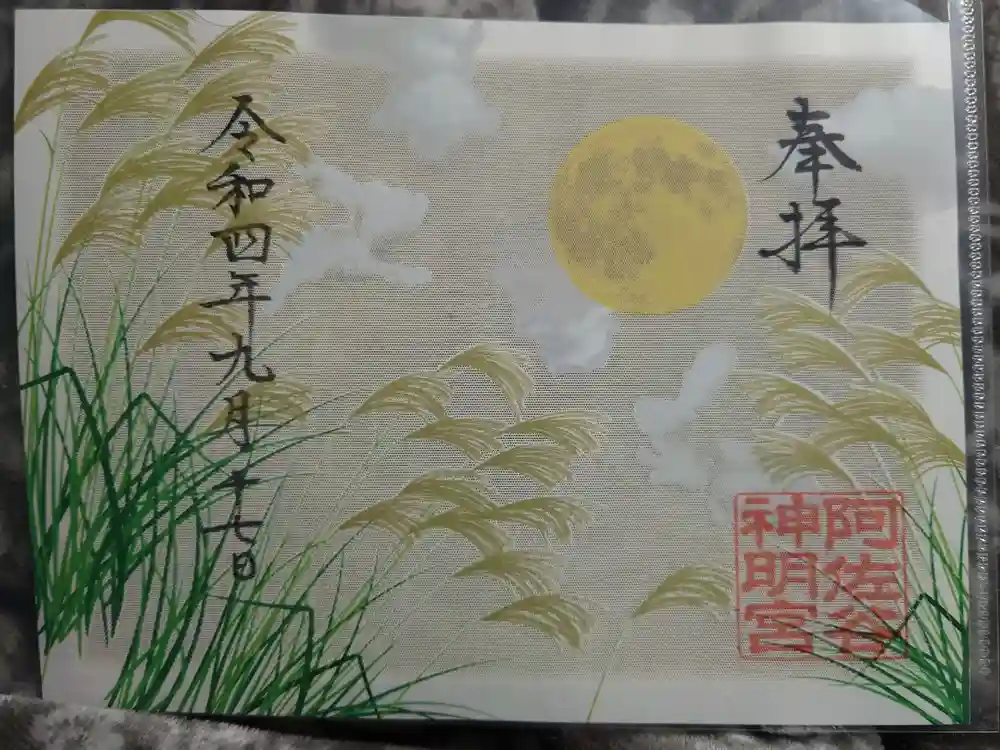 奉拝
阿佐谷
神明宮
令和四年九月十七日